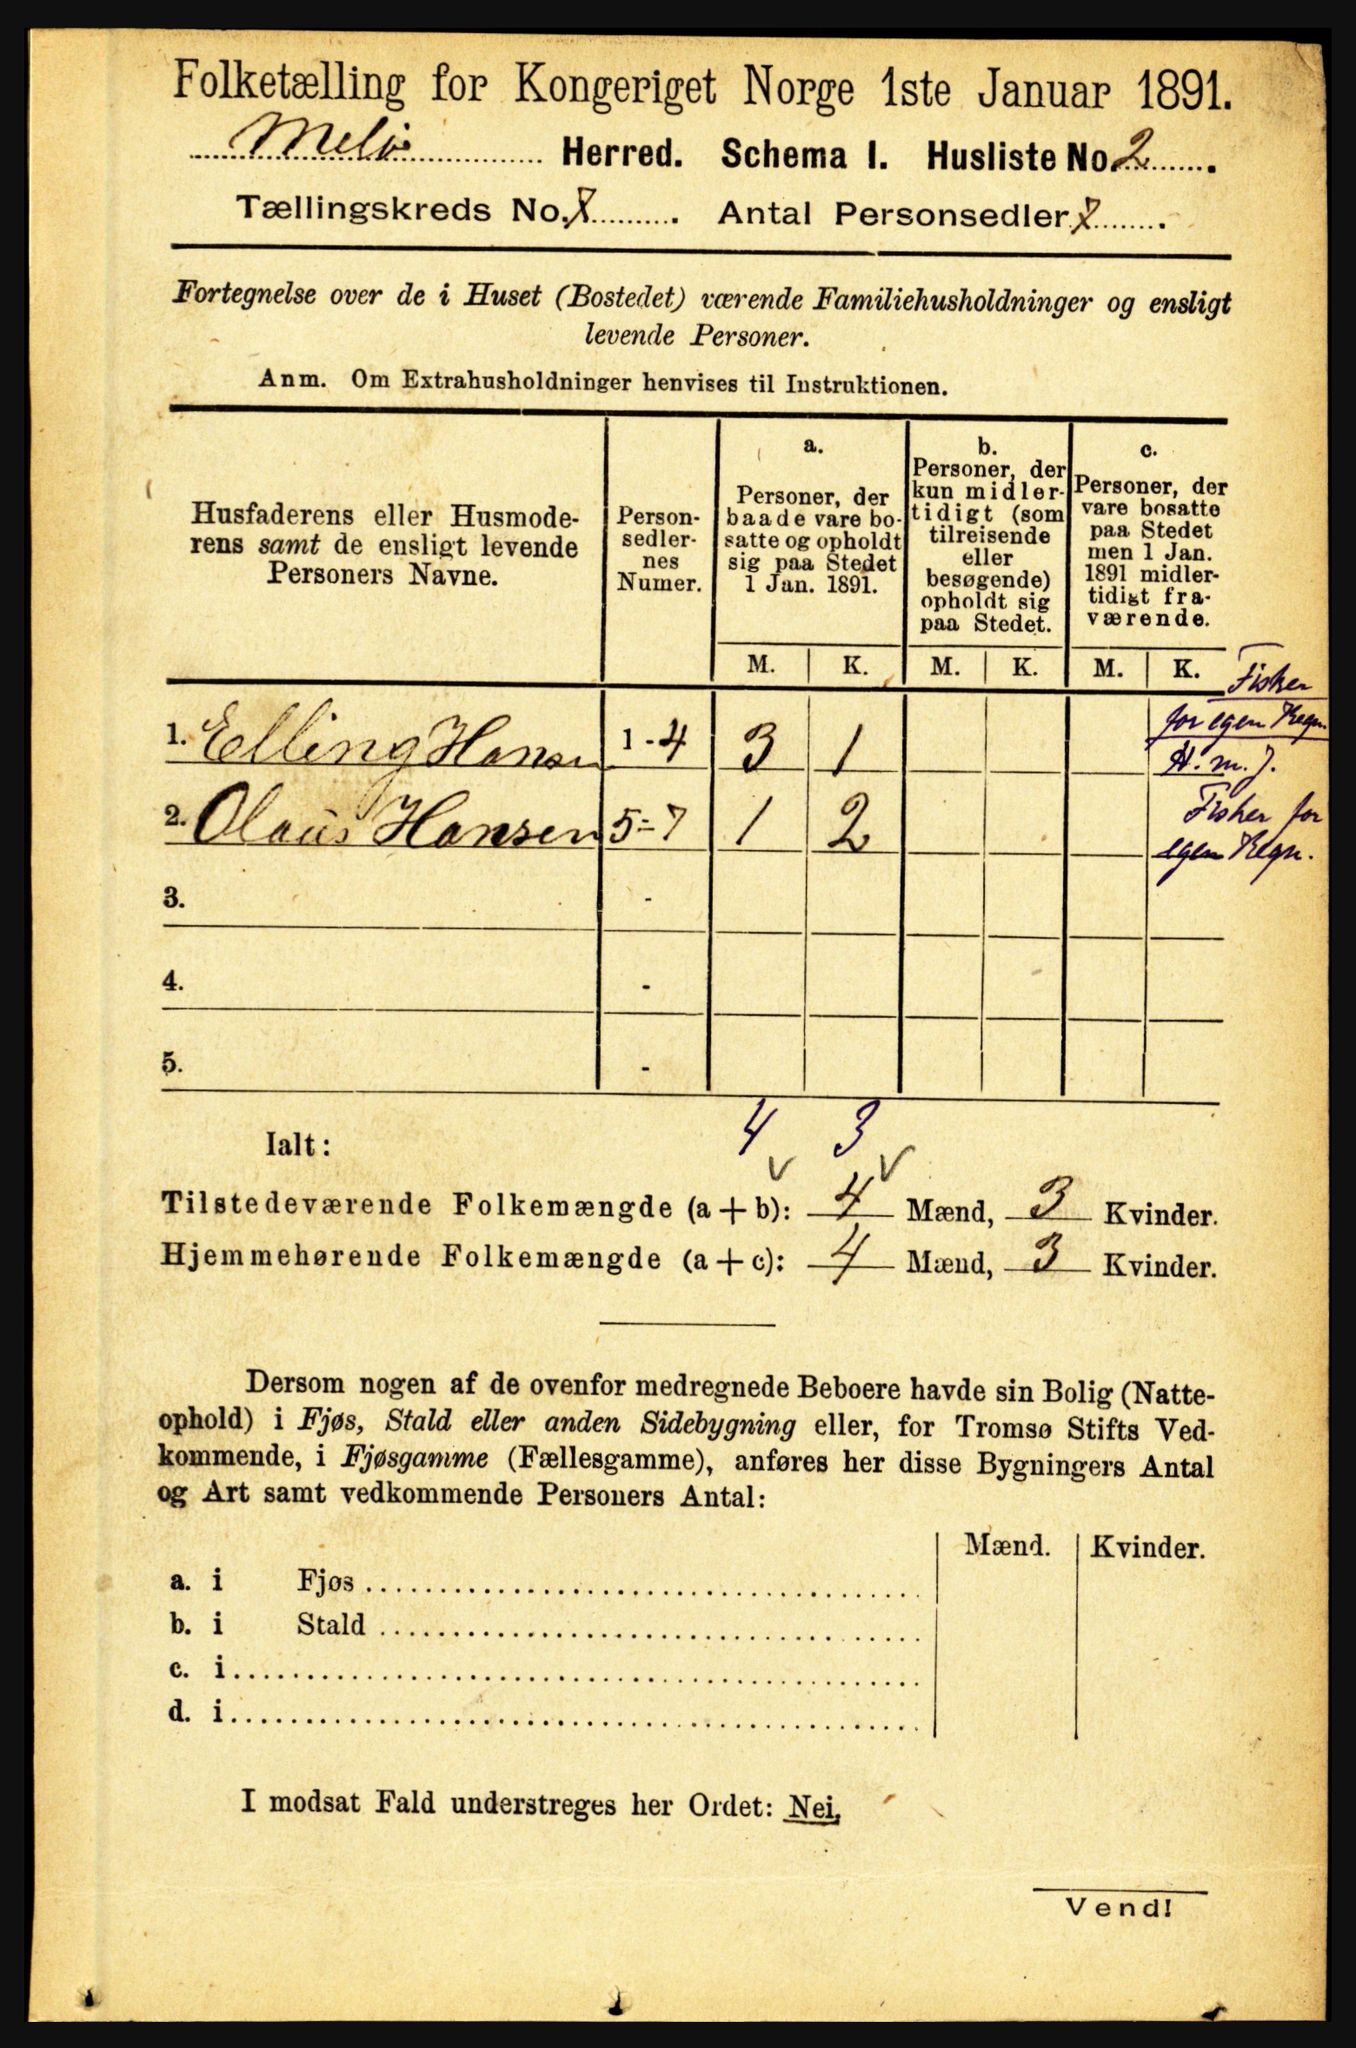 Folketælling for Kongeriget Norge 1ste Januar 1891.
Melø Herred. Schema I. Husliste No. 2.
Tællingskreds No. 8. Antal Personsedler 7.
Fortegnelse over de i Huset (Bostedet) værende Familiehusholdninger og ensligt
levende Personer.
Anm. Om Extrahusholdninger henvises til Instruktionen.
Husfaderens eller Husmode-
rens samt de ensligt levende
Personers Navne.
Person-
sedler-
nes
Numer.
a.
Personer, der
baade vare bo-
satte og opholdt
sig paa Stedet
1 Jan. 1891.
b.
Personer, der
kun midler-
tidigt (som
tilreisende
eller
besøgende)
opholdt sig
paa Stedet.
c.
Personer, der
vare bosatte
paa Stedet
men 1 Jan.
1891 midler-
tidigt fra-
værende.
M. K. M. K. M. K.
1. Elling Hansen 1-4 3 1
Fisker
for egen Regn.
H. m. J.
2. Olaus Hansen 5-7 1 2
Fisker for
egen Regn.
3. -
4. -
5. -
4 3
Ialt:
Tilstedeværende Folkemængde (a+b): 4 Mænd, 3 Kvinder.
Hjemmehørende Folkemængde (a+c): 4 Mænd, 3 Kvinder.
Dersom nogen af de ovenfor medregnede Beboere havde sin Bolig (Natte-
ophold) i Fjøs, Stald eller anden Sidebygning eller, for Tromsø Stifts Ved-
kommende, i Fjøsgamme (Fællesgamme), anføres her disse Bygningers Antal
og Art samt vedkommende Personers Antal:
Mænd. Kvinder.
a. i Fjøs
b. i Stald
c. i
d. i
I modsat Fald understreges her Ordet: Nei.
Vend!